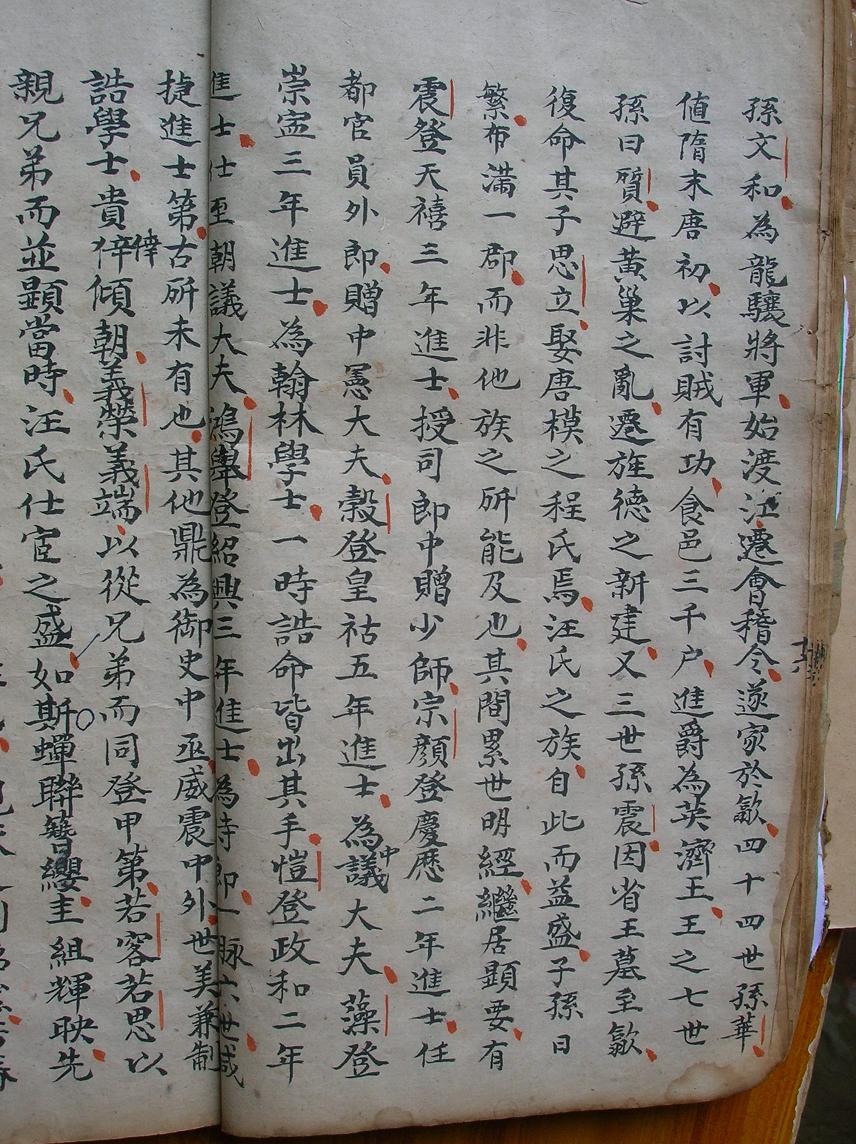 孫文和為龍驤將軍始渡江遷會稽令遂家於歙四十四世孫華
值隋末唐初以討賊有功食邑三千户進爵為英濟王王之七世
孫曰質避黃巢之亂遷旌德之新建又三世孫震因省王墓至歙
復命其子思立娶唐模之程氏焉汪氏之族自此而益盛子孫日
繁布滿一郡而非他族之所能及也其間累世明經繼居顯要有
震登天禧三年進士授司郎中贈少師宗顔登慶歷二年進士任
都官員外郎贈中憲大夫榖登皇祐五年進士為中議大夫藻登
崇寧三年進士為翰林學士一時誥命皆出其手愷登政和二年
進士仕至朝議大夫鴻舉登紹興三年進士為侍郎一脉六世咸
捷進士第古所未有也其他鼎為御史中丞威震中外世美兼制
誥學士貴倖傾朝義榮義端以從兄弟而同登甲第若容若思以
親兄弟而並顯當時汪氏仕宦之盛如斯蟬聯簪纓圭組輝映先